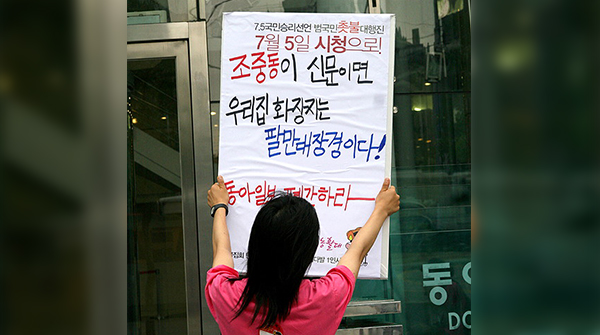 7.5국민승리선언 범국민촛불대행진
7월 5일 시청으로!
조중동이 신문이면
우리집 화장지는
팔만대장경이다!
동아일보 폐간하라
다발 1인시
동아
DO